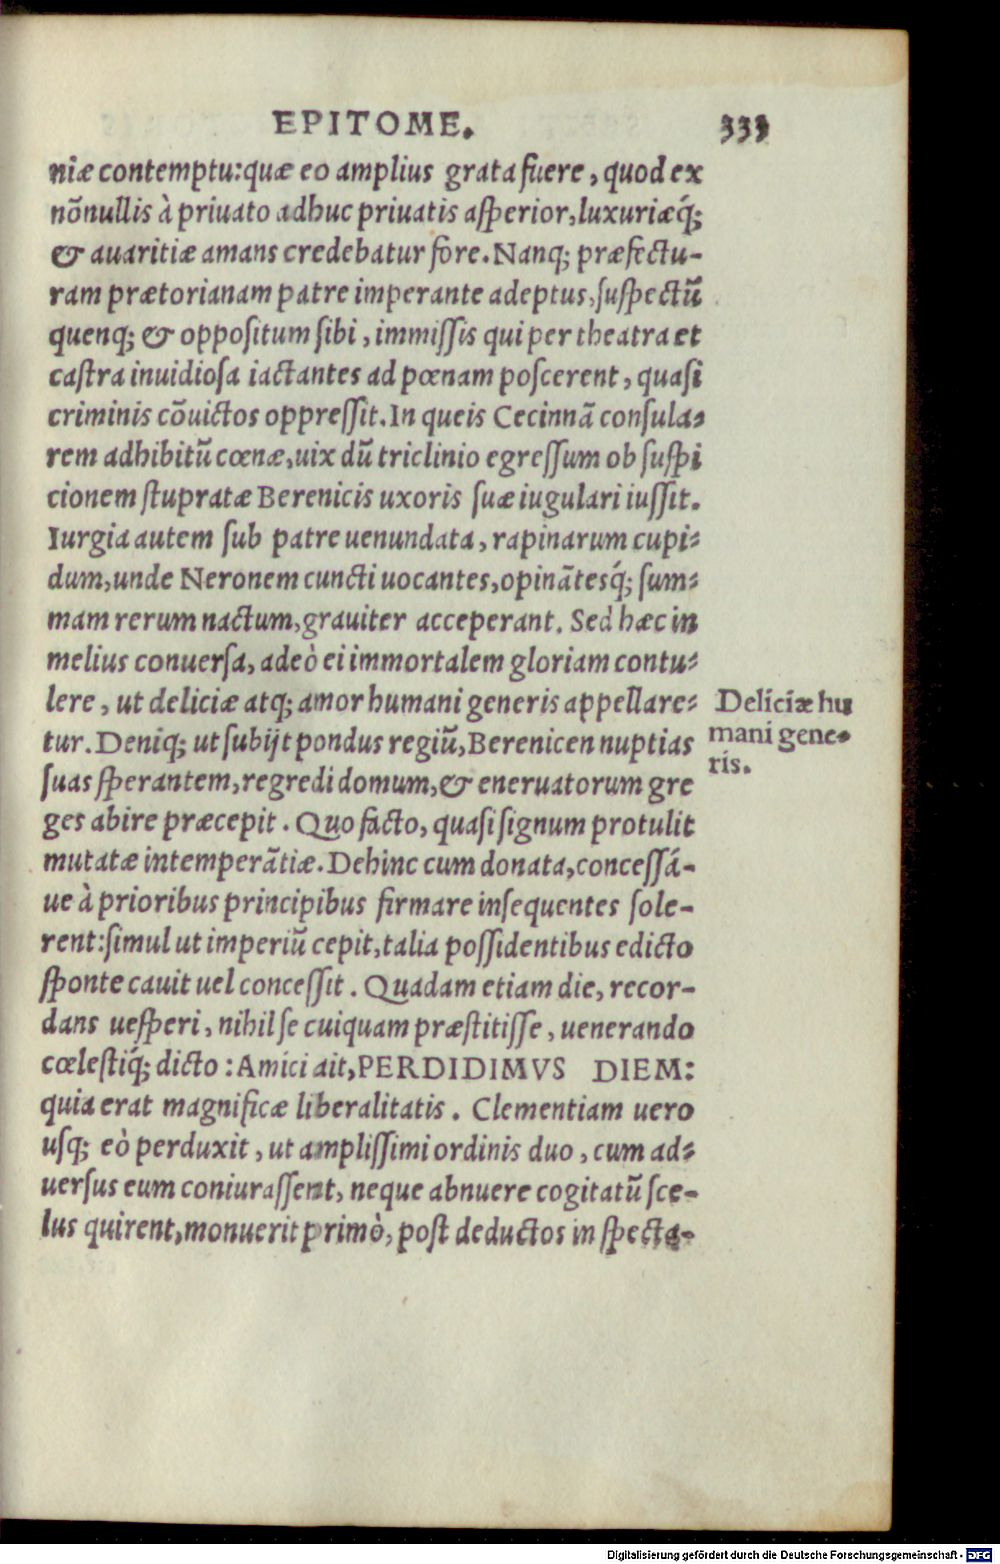 EPITOME. 333
niæ contemptu: quæ eo amplius grata fuere, quod ex
nõnullis à priuato adhuc priuatis asperior, luxuriæq́;
& auaritiæ amans credebatur fore. Nanq; præfectu-
ram prætorianam patre imperante adeptus, suspectũ
quenq; & oppositum sibi, immissis qui per theatra et
castra inuidiosa iactantes ad pœnam poscerent, quasi
criminis cõuictos oppressit. In queis Cecinnã consula-
rem adhibitũ cœnæ, uix dũ triclinio egressum ob suspi
cionem stupratæ Berenicis uxoris suæ iugulari iussit.
Iurgia autem sub patre uenundata, rapinarum cupi-
dum, unde Neronem cuncti uocantes, opinãtesq́; sum-
mam rerum nactum, grauiter acceperant. Sed hæc in
melius conuersa, adeò ei immortalem gloriam contu-
lere, ut deliciæ atq; amor humani generis appellare-
tur. Deniq; ut subijt pondus regiũ, Berenicen nuptias
suas sperantem, regredi domum, & eneruatorum gre
ges abire præcepit. Quo facto, quasi signum protulit
mutatæ intemperãtiæ. Dehinc cum donata, concessá-
ue à prioribus principibus firmare insequentes sole-
rent: simul ut imperiũ cepit, talia possidentibus edicto
sponte cauit uel concessit. Quadam etiam die, recor-
dans uesperi, nihil se cuiquam præstitisse, uenerando
cœlestiq́; dicto: Amici ait, PERDIDIMVS DIEM:
quia erat magnificæ liberalitatis. Clementiam uero
usq; eò perduxit, ut amplissimi ordinis duo, cum ad-
uersus eum coniurassent, neque abnuere cogitatũ sce-
lus quirent, monuerit primò, post deductos in specta-
Deliciæ hu
mani gene-
ris.
Digitalisierung gefördert durch die Deutsche Forschungsgemeinschaft - DFG